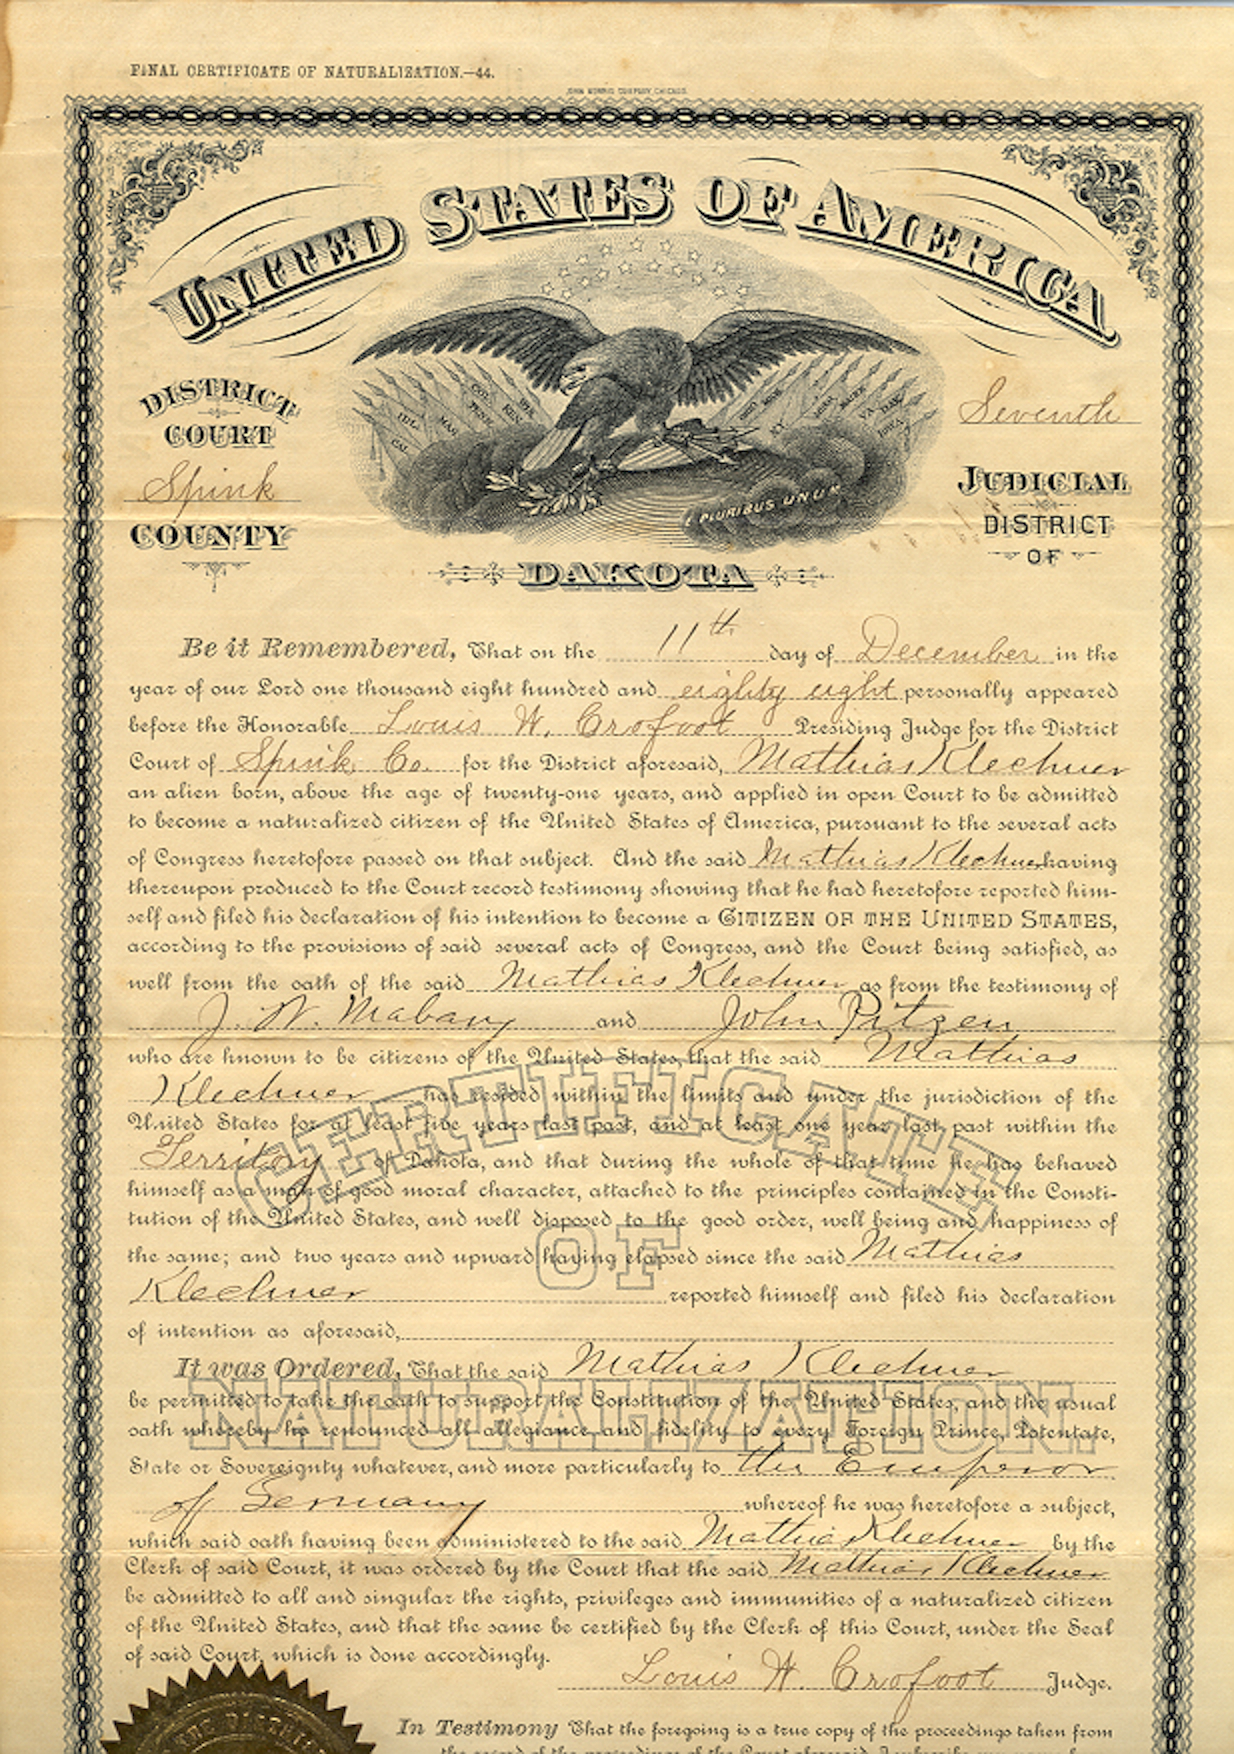 FINAL CERTIFICATE OF NATURALIZATION.—44.
JOHN MORRIS COMPANY, CHICAGO.
UNITED STATES OF AMERICA
DISTRICT
COURT
Spink
COUNTY
Seventh
JUDICIAL
DISTRICT
OF
CAL.
ILL.
MAS.
COL.
PENN.
KEN.
KY.
VA.
DAK.
IOWA
E PLURIBUS UNUM
DAKOTA
Be it Remembered, That on the 11th day of December in the
year of our Lord one thousand eight hundred and eighty eight personally appeared
before the Honorable Louis W. Crofoot Presiding Judge for the District
Court of Spink Co. for the District aforesaid, Mathias Klechner
an alien born, above the age of twenty-one years, and applied in open Court to be admitted
to become a naturalized citizen of the United States of America, pursuant to the several acts
of Congress heretofore passed on that subject. And the said Mathias Klechner having
thereupon produced to the Court record testimony showing that he had heretofore reported him-
self and filed his declaration of his intention to become a CITIZEN OF THE UNITED STATES,
according to the provisions of said several acts of Congress, and the Court being satisfied, as
well from the oath of the said Mathias Klechner as from the testimony of
J. W. Mabany and John Pitzen
who are known to be citizens of the United States, that the said Mathias
Klechner has resided within the limits and under the jurisdiction of the
United States for at least five years last past, and at least one year last past within the
Territory of Dakota, and that during the whole of that time he has behaved
himself as a man of good moral character, attached to the principles contained in the Consti-
tution of the United States, and well disposed to the good order, well being and happiness of
the same; and two years and upward having elapsed since the said Mathias
Klechner reported himself and filed his declaration
of intention as aforesaid,
It was Ordered, That the said Mathias Klechner
be permitted to take the oath to support the Constitution of the United States, and the usual
oath whereby he renounced all allegiance and fidelity to every Foreign Prince, Potentate,
State or Sovereignty whatever, and more particularly to the Emperor
of Germany whereof he was heretofore a subject,
which said oath having been administered to the said Mathias Klechner by the
Clerk of said Court, it was ordered by the Court that the said Mathias Klechner
be admitted to all and singular the rights, privileges and immunities of a naturalized citizen
of the United States, and that the same be certified by the Clerk of this Court, under the Seal
of said Court, which is done accordingly.
Louis W. Crofoot Judge.
CERTIFICATE
OF
NATURALIZATION.
In Testimony That the foregoing is a true copy of the proceedings taken from